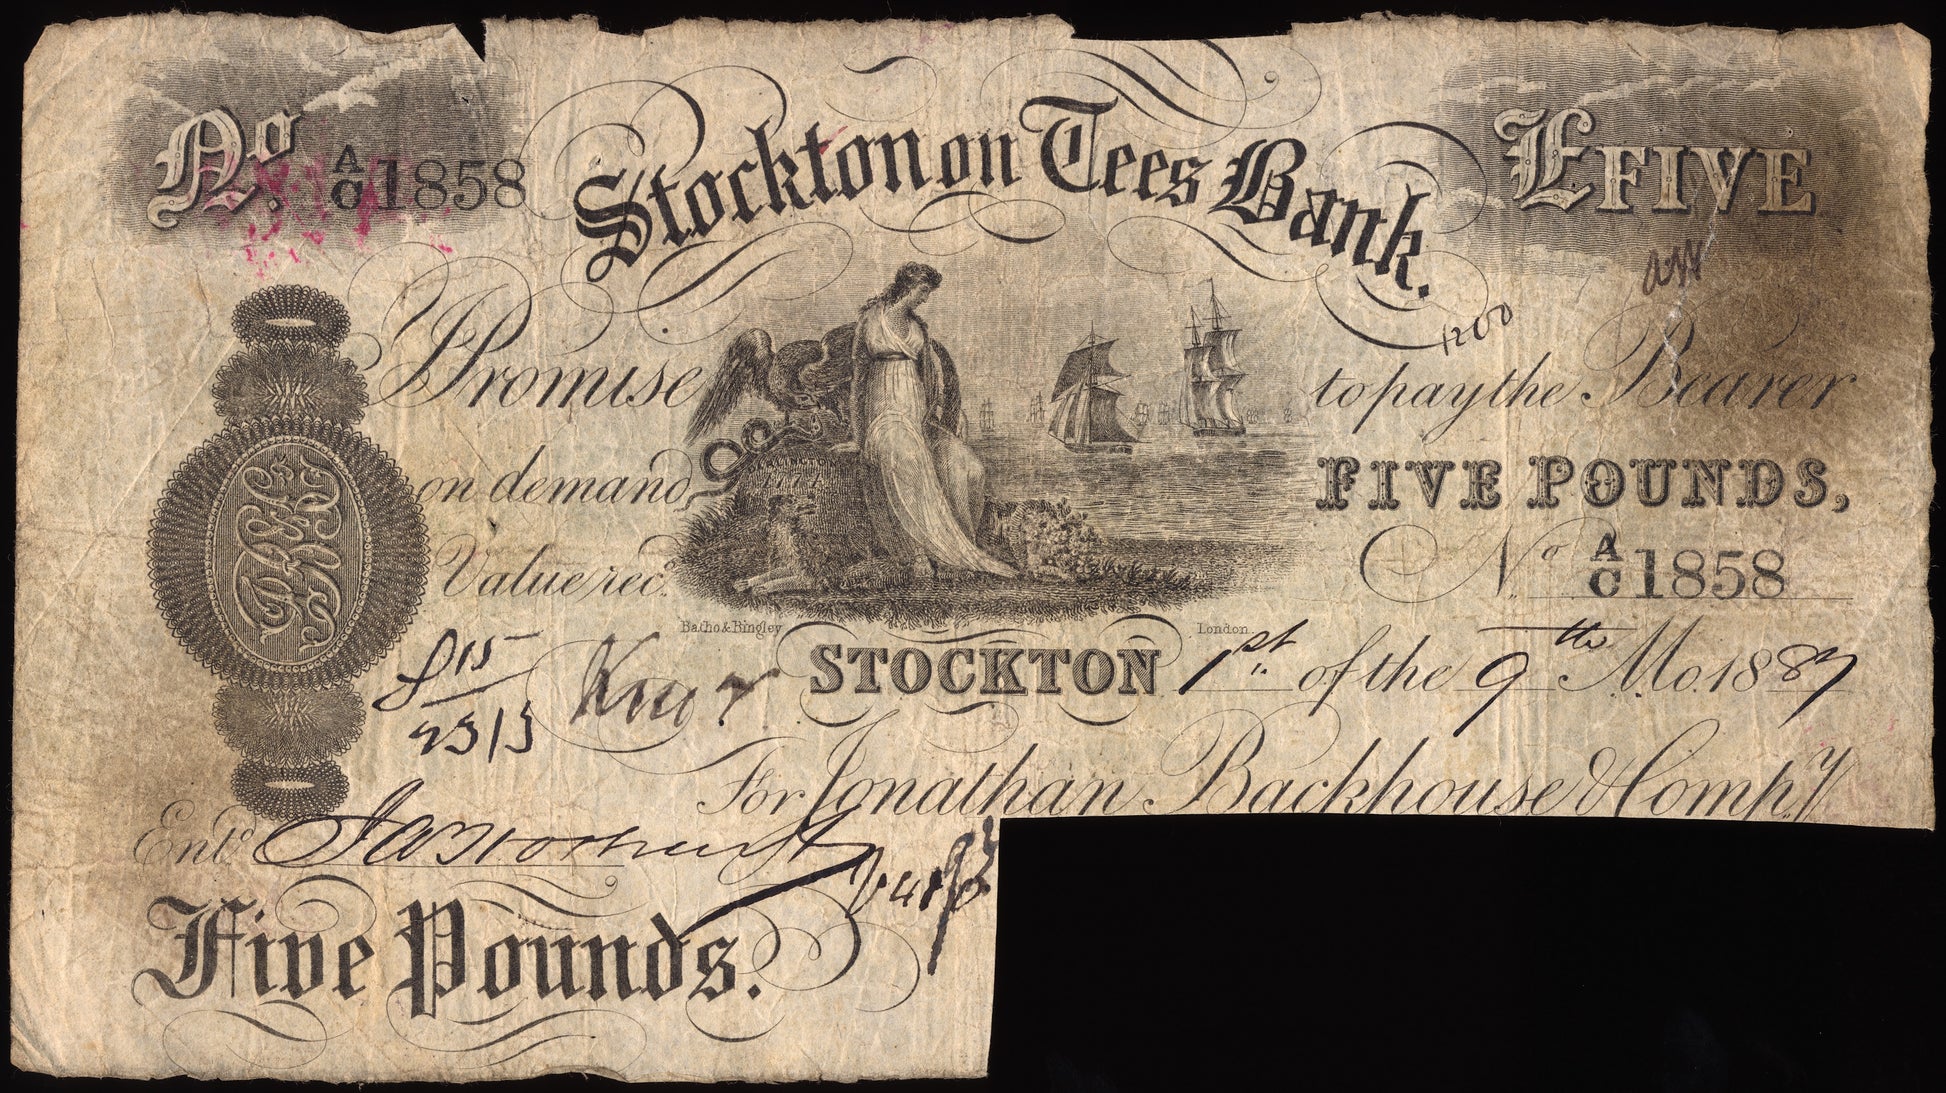 No. A/C 1858
Stockton on Tees Bank.
£ FIVE
1200
I Promise to pay the Bearer
on demand FIVE POUNDS,
Value rec.d No A/C 1858
Batho & Bingley London
£15 STOCKTON 1st of the 9th Mo. 1887
For Jonathan Backhouse & Compy
Entd
Five Pounds.